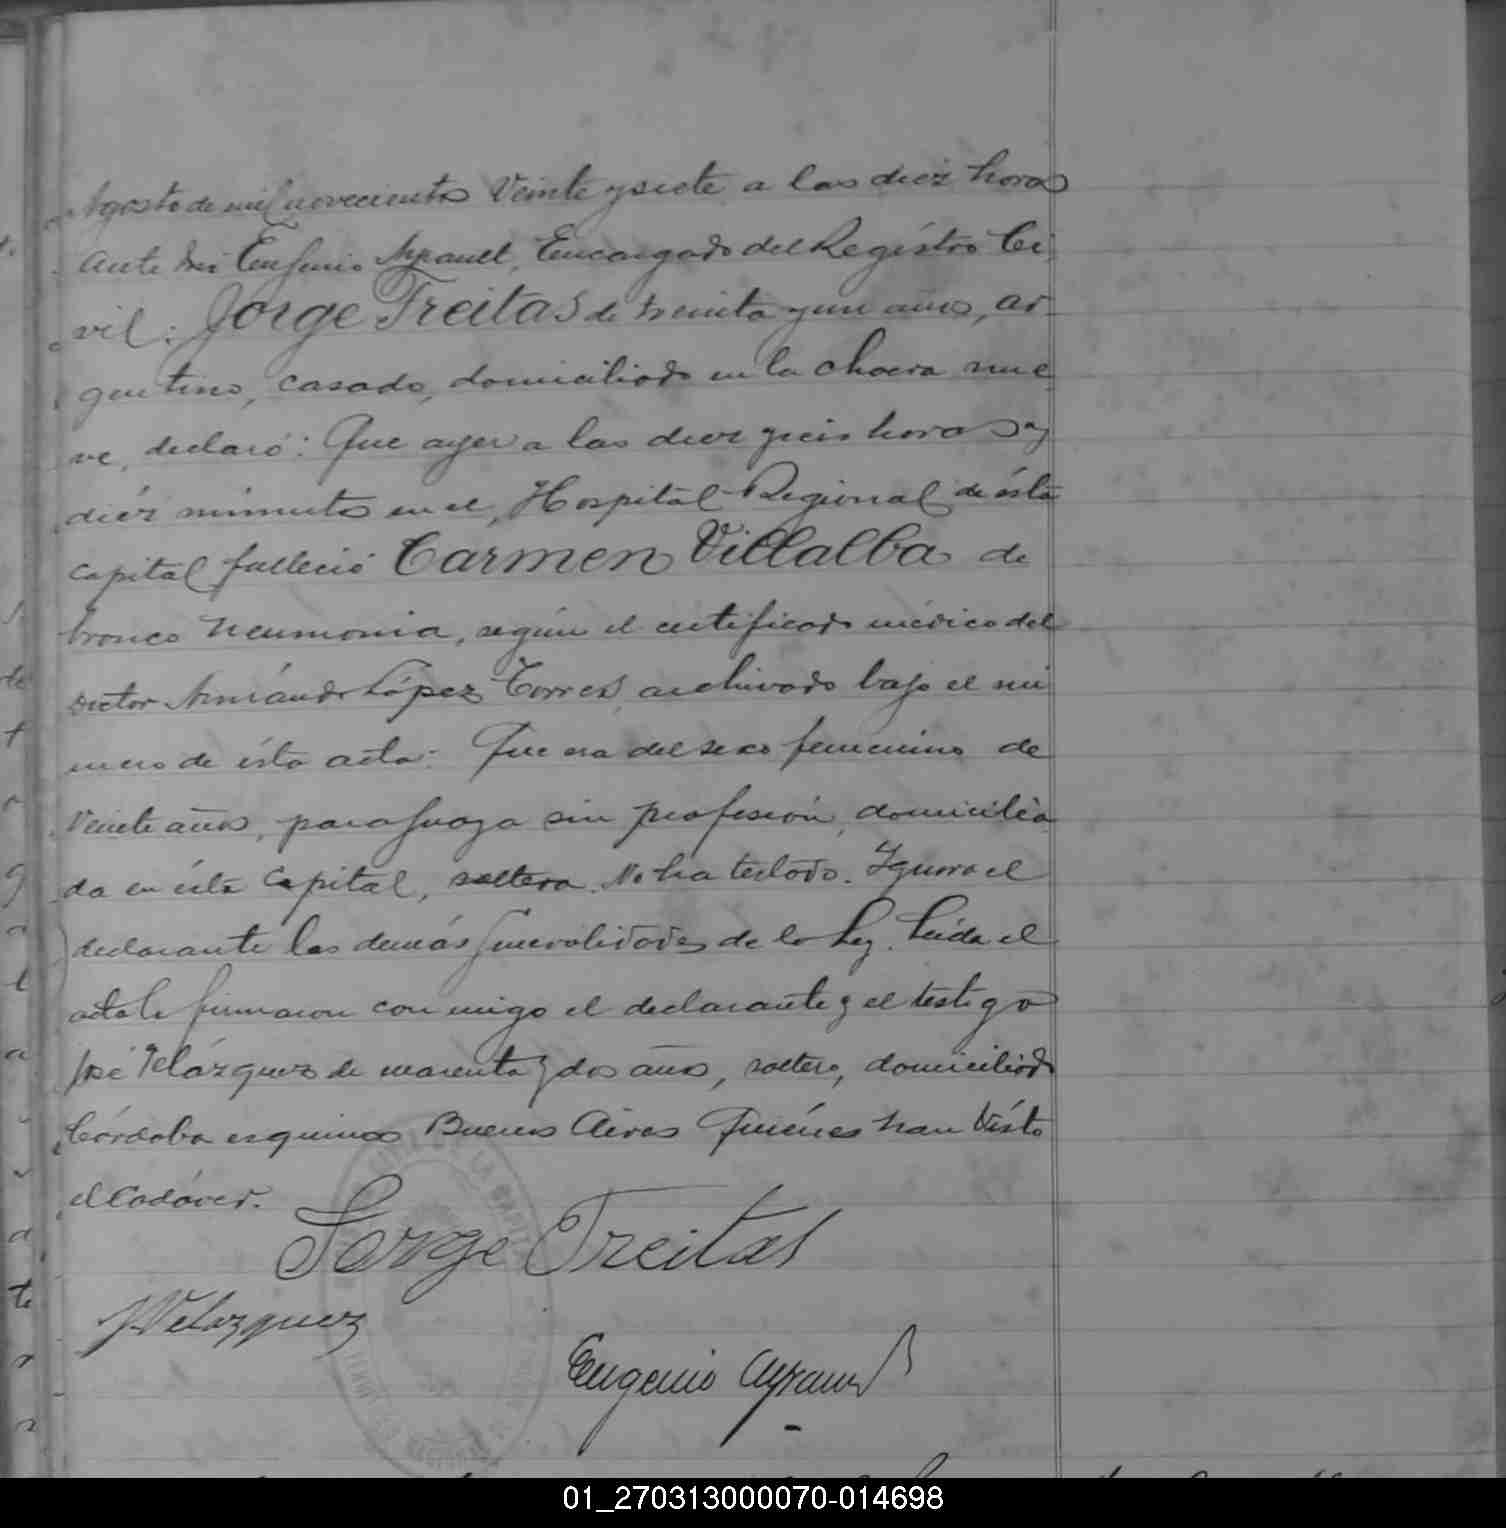 Agosto de mil novecientos Veinte y siete a las diez horas
Ante mi Eugenio Ayrault, Encargado del Registro Ci
vil: Jorge Freitas de treinta y un años, ar
gentino, casado, domiciliado en la chacra nue
ve, declaró: Que ayer a las diez y seis horas y
diéz minutos en el, Hospital Regional de ésta
capital falleció Carmen Villalba de
bronco neumonia, según el certificado médico del
doctor Armándo López Torres, archivado bajo el nú
mero de ésta acta: Que era del sexo femenino de
Veinte años, paraguaya sin profesión, domicilia
da en ésta Capital, soltera. No ha testado. Ignora el
declarante las demás generalidades de la ley. Leida el
acta la firmaron con migo el declarante y el testigo
José Velázquez de cuarenta y dos años, soltero, domiciliado
Córdoba esquina Buenos Aires Quiénes han Visto
el Cadáver.
Jorge Freitas
J Velazquez
Eugenio Ayrault
01_270313000070-014698